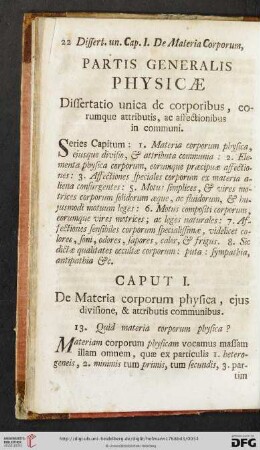 22 Dissert. un. Cap. I. De Materia Corporum,
PARTIS GENERALIS
PHYSICÆ
Dissertatio unica de corporibus, eo-
rumque attributis, ac affectionibus
in communi.
Series Capitum: 1. Materia corporum physica,
ejusque divisio, & attributa communia: 2. Ele-
menta physica corporum, eorumque præcipuæ affectio-
nes: 3. Affectiones speciales corporum ex materia a-
liena consurgentes: 5. Motus simplices, & vires mo-
trices corporum solidorum æque, ac fluidorum, & hu-
jusmodi motuum leges: 6. Motus compositi corporum,
eorumque vires motrices, ac leges naturales: 7. Af-
fectiones sensibiles corporum specialissimæ, videlicet ca-
lores, soni, odores, sapores, calor, & frigus. 8. Sic
dictæ qualitates occultæ corporum: puta: Sympathia,
antipathia &c.
CAPUT I.
De Materia corporum physica, ejus
divisione, & attributis communibus.
13. Quid materia corporum physica?
Materiam corporum physicam vocamus massam
illam omnem, quæ ex particulis 1. hetero-
geneis, 2. minimis tum primis, tum secundis, 3. par-
tium